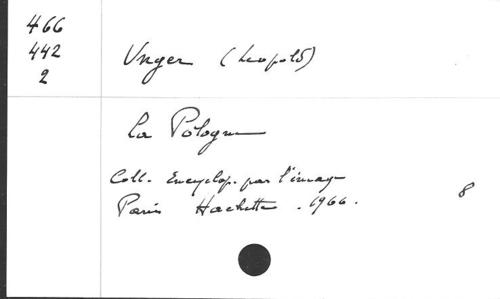 466
442
2
Unger (Leopold)
La Pologne
Coll. Encyclop. par l'image
Paris Hachette . 1966 .
8